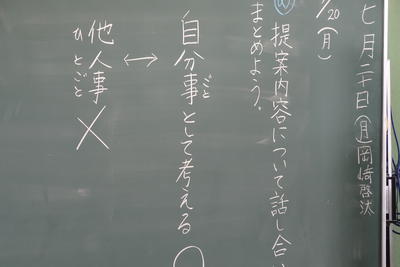 七月二十日(月)岡崎啓汰
/20(月)
提案内容について話し合い
まとめよう。
自分事として考える
ごと
↔
他人事
ひとごと